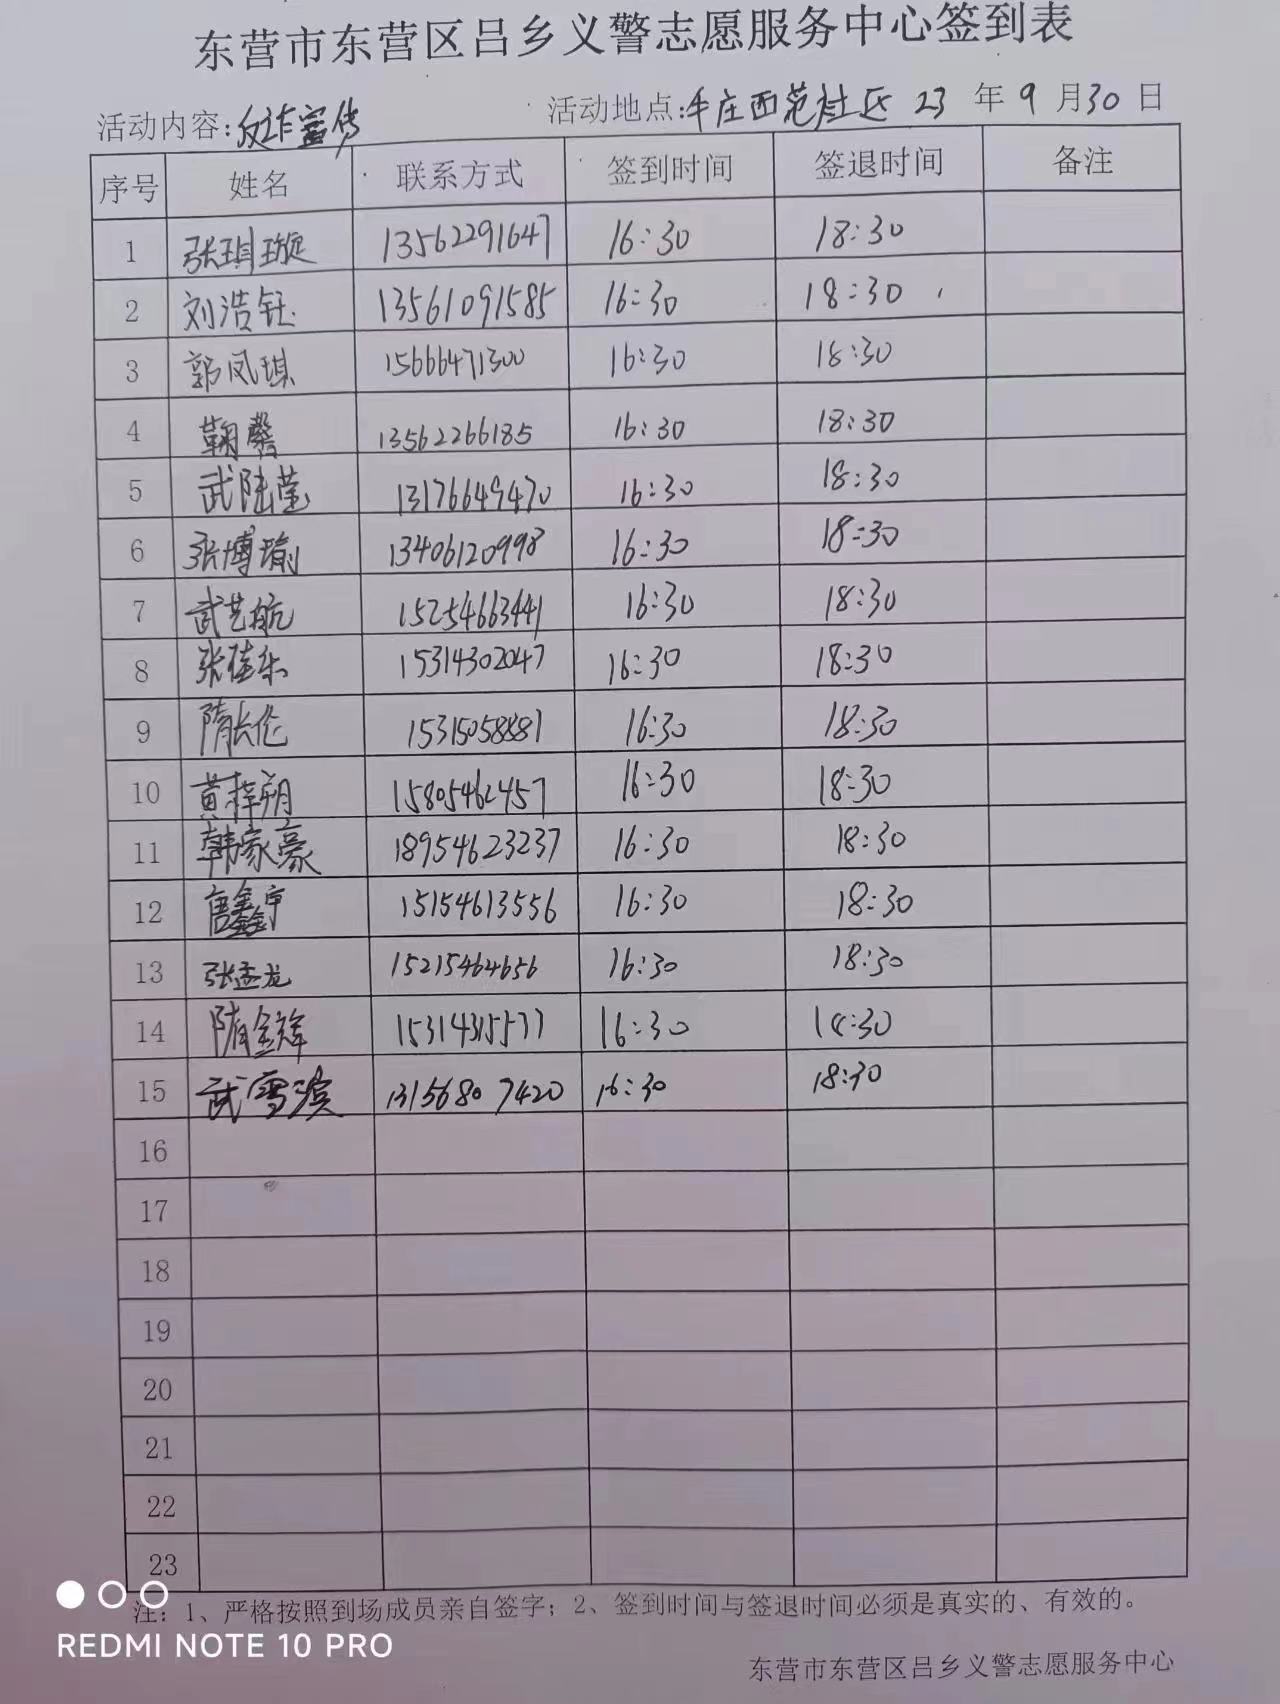 东营市东营区吕乡义警志愿服务中心签到表
活动内容:反诈宣传 活动地点:牛庄西范社区 23 年 9 月 30 日
序号 姓名 联系方式 签到时间 签退时间 备注
1 张琪璇 13562291647 16:30 18:30
2 刘浩钰 13561091585 16:30 18:30
3 郭凤琪 15666471300 16:30 18:30
4 鞠馨 13562266185 16:30 18:30
5 武陆莹 13176649470 16:30 18:30
6 张博瑜 13406120998 16:30 18:30
7 武艺航 15254663441 16:30 18:30
8 张佳乐 15314302047 16:30 18:30
9 隋长伦 15315058887 16:30 18:30
10 黄梓朔 15805462457 16:30 18:30
11 韩家豪 18954623237 16:30 18:30
12 唐鑫宇 15154613556 16:30 18:30
13 张孟龙 15215464656 16:30 18:30
14 隋金辉 15314315577 16:30 18:30
15 武雪滨 13156807420 16:30 18:30
16
17
18
19
20
21
22
23
注：1、严格按照到场成员亲自签字；2、签到时间与签退时间必须是真实的、有效的。
REDMI NOTE 10 PRO
东营市东营区吕乡义警志愿服务中心